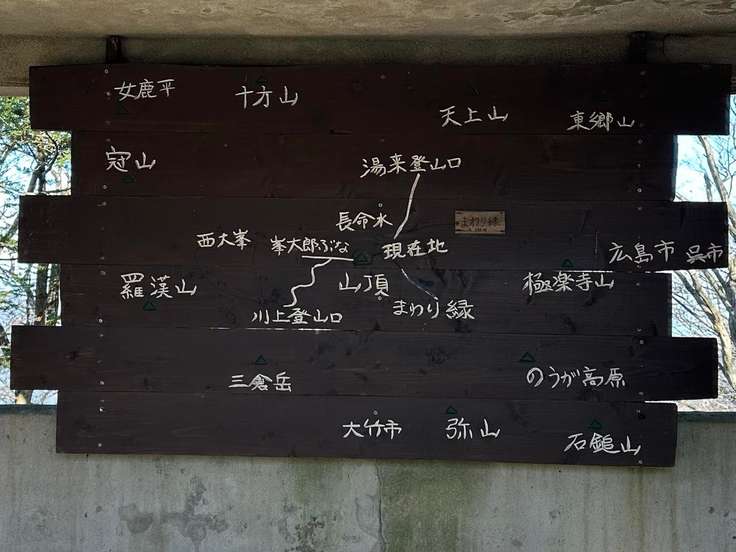 女鹿平
十方山
天上山
東郷山
冠山
湯来登山口
長命水
まわり縁
西大峯
峯太郎ぶな
現在地
広島市
呉市
羅漢山
山頂
極楽寺山
川上登山口
まわり縁
三倉岳
のうが高原
大竹市
弥山
石鎚山